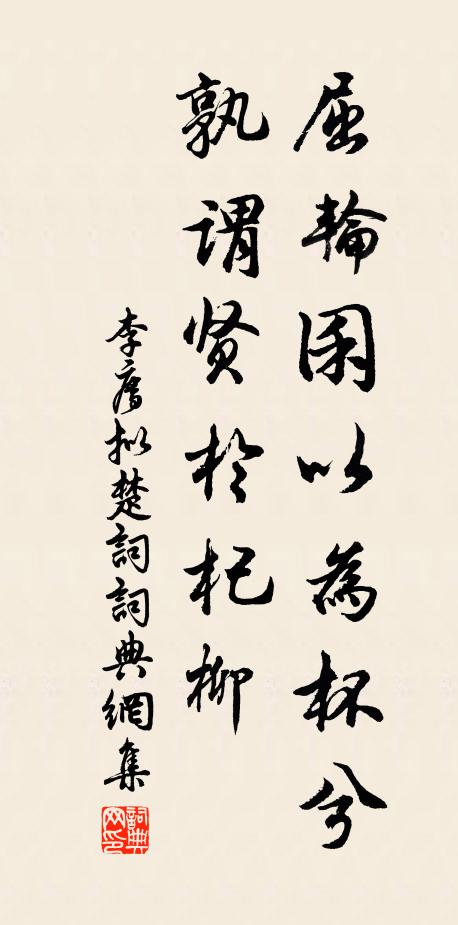 屈輪囷以為杯兮
孰謂贤於杞柳
李廌拟楚詞詞典網集
詞典网印